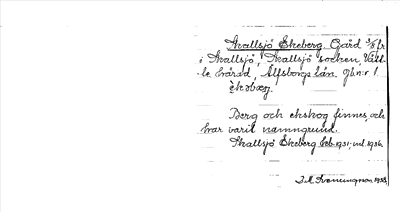 Skallsjö Ekeberg. Gård 3/8 fr
i Skallsjö, Skallsjö socken, Vätt-
le härad, Älfsborgs län. Jb.n:r 1
ek
Berg och ekskog finnes, och
har varit namngrund.
Skallsjö Ekeberg beb. 1931; inl. 1936.
1933.